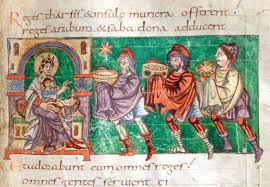 Reges tharsis & insule munera offerent
reges arabum & saba dona adducent
Et adorabunt eum omnes reges
omnes gentes seruient ei